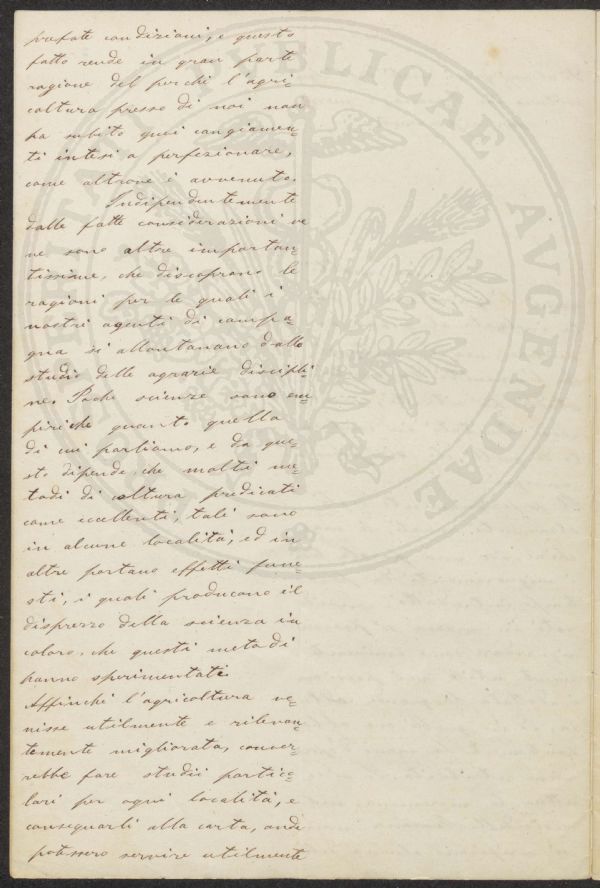 prefate condizioni, e questo
fatto rende in gran parte
ragione del perchè l'agri=
coltura presso di noi non
ha subito quei cangiamen=
ti intesi a perfezionare,
come altrove è avvenuto.
Indipendentemente
dalle fatte considerazioni ve
ne sono altre importan=
tissime, che discoprano le
ragioni per le quali i
nostri agenti di campa=
gna si allontanano dallo
studio delle agrarie discipli=
ne. Poche scienze sono em=
piriche quanto quella
di cui parliamo, e da que=
sto dipende, che molti me=
todi di coltura predicati
come eccellenti, tali sono
in alcune località, ed in
altre portano effetti fune=
sti, i quali producono il
disprezzo della scienza in
coloro, che questi metodi
hanno sperimentati.
Affinchè l'agricoltura ve=
nisse utilmente e rilevan=
temente migliorata, conver=
rebbe fare studii partico=
lari per ogni località, e
consegnarli alla carta, onde
potessero servire utilmente
PUBLICAE
AVGENDAE